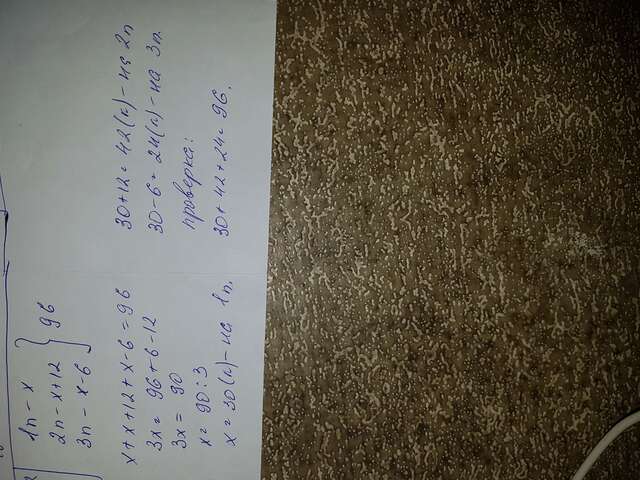 1п - х
2п - х+12 } 96
3п - х-6
х+х+12+х-6=96
3х= 96+6-12
3х= 90
х= 90:3
х=30(к)-на 1п.
30+12=42(к)-на 2п
30-6=24(к)-на 3п.
проверка:
30+42+24=96.